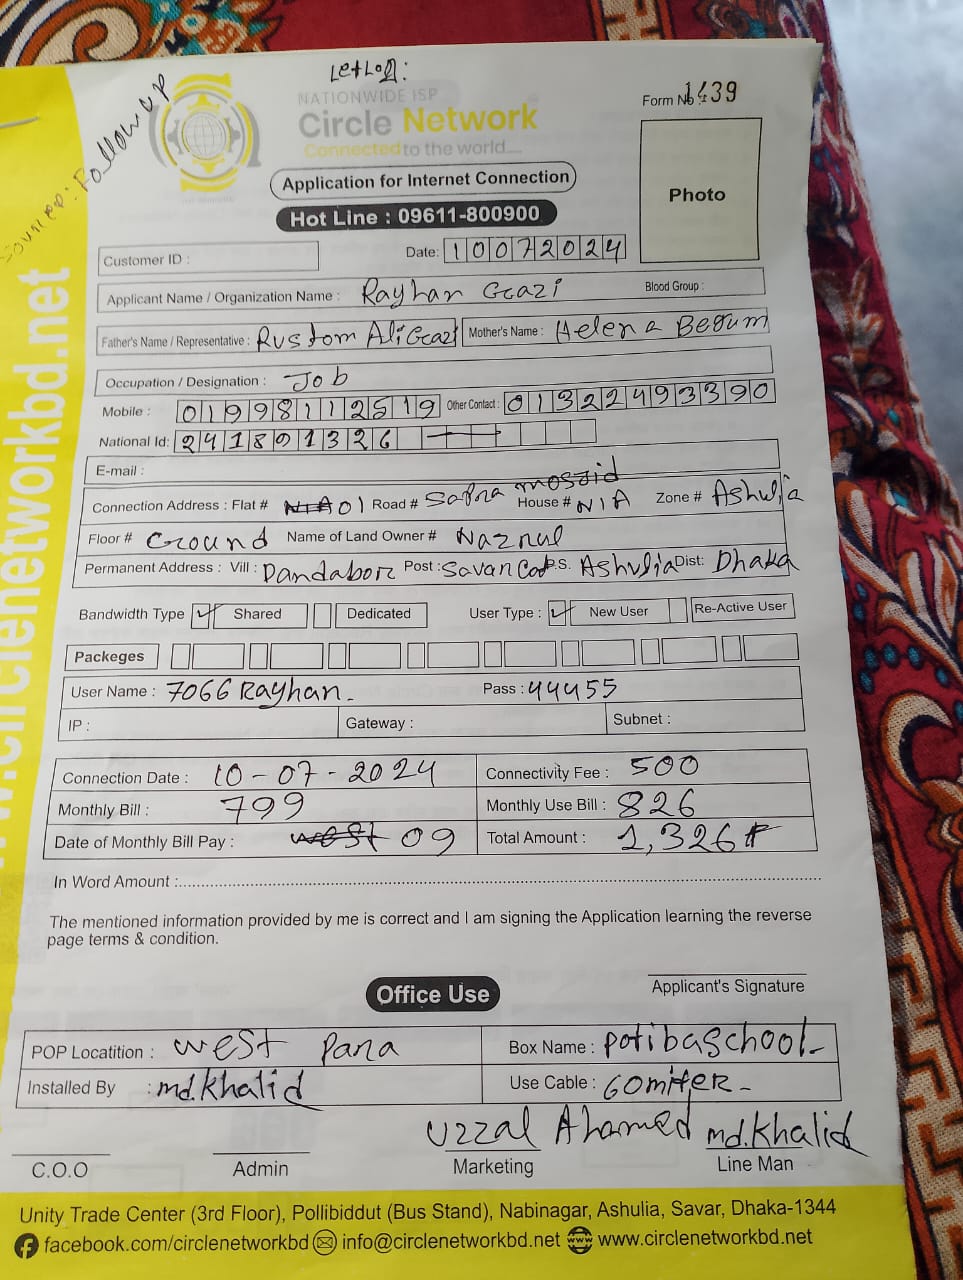 Let Lon:
Sources: Follow up
NATIONWIDE ISP
Circle Network
Connected to the world....
Form No 1439
Application for Internet Connection
Hot Line : 09611-800900
Photo
Customer ID :
Date: 10072024
Applicant Name / Organization Name : Rayhan Gazi
Blood Group :
Father's Name / Representative : Rustom Ali Gazi Mother's Name : Helena Begum
Occupation / Designation : Job
Mobile : 01998112519 Other Contact : 01322493390
National Id: 2418901326
E-mail :
Connection Address : Flat # N/A 01 Road # Sapra moszid House # N/A Zone # Ashulia
Floor # Ground Name of Land Owner # Naznul
Permanent Address : Vill : Dandabor Post : Savan Cat P.S. Ashulia Dist: Dhaka
Bandwidth Type Shared Dedicated User Type : New User Re-Active User
Packeges
User Name : 7066 Rayhan Pass : 44455
IP : Gateway : Subnet :
Connection Date : 10-07-2024 Connectivity Fee : 500
Monthly Bill : 799 Monthly Use Bill : 826
Date of Monthly Bill Pay : west 09 Total Amount : 1,326৳
In Word Amount :
The mentioned information provided by me is correct and I am signing the Application learning the reverse
page terms & condition.
Applicant's Signature
Office Use
POP Locatition : west para Box Name : potibaschool
Installed By : md.khalid Use Cable : 60miter
Uzzal Ahamed md.khalid
C.O.O Admin Marketing Line Man
Unity Trade Center (3rd Floor), Pollibiddut (Bus Stand), Nabinagar, Ashulia, Savar, Dhaka-1344
facebook.com/circlenetworkbd info@circlenetworkbd.net www.circlenetworkbd.net
www.circlenetworkbd.net